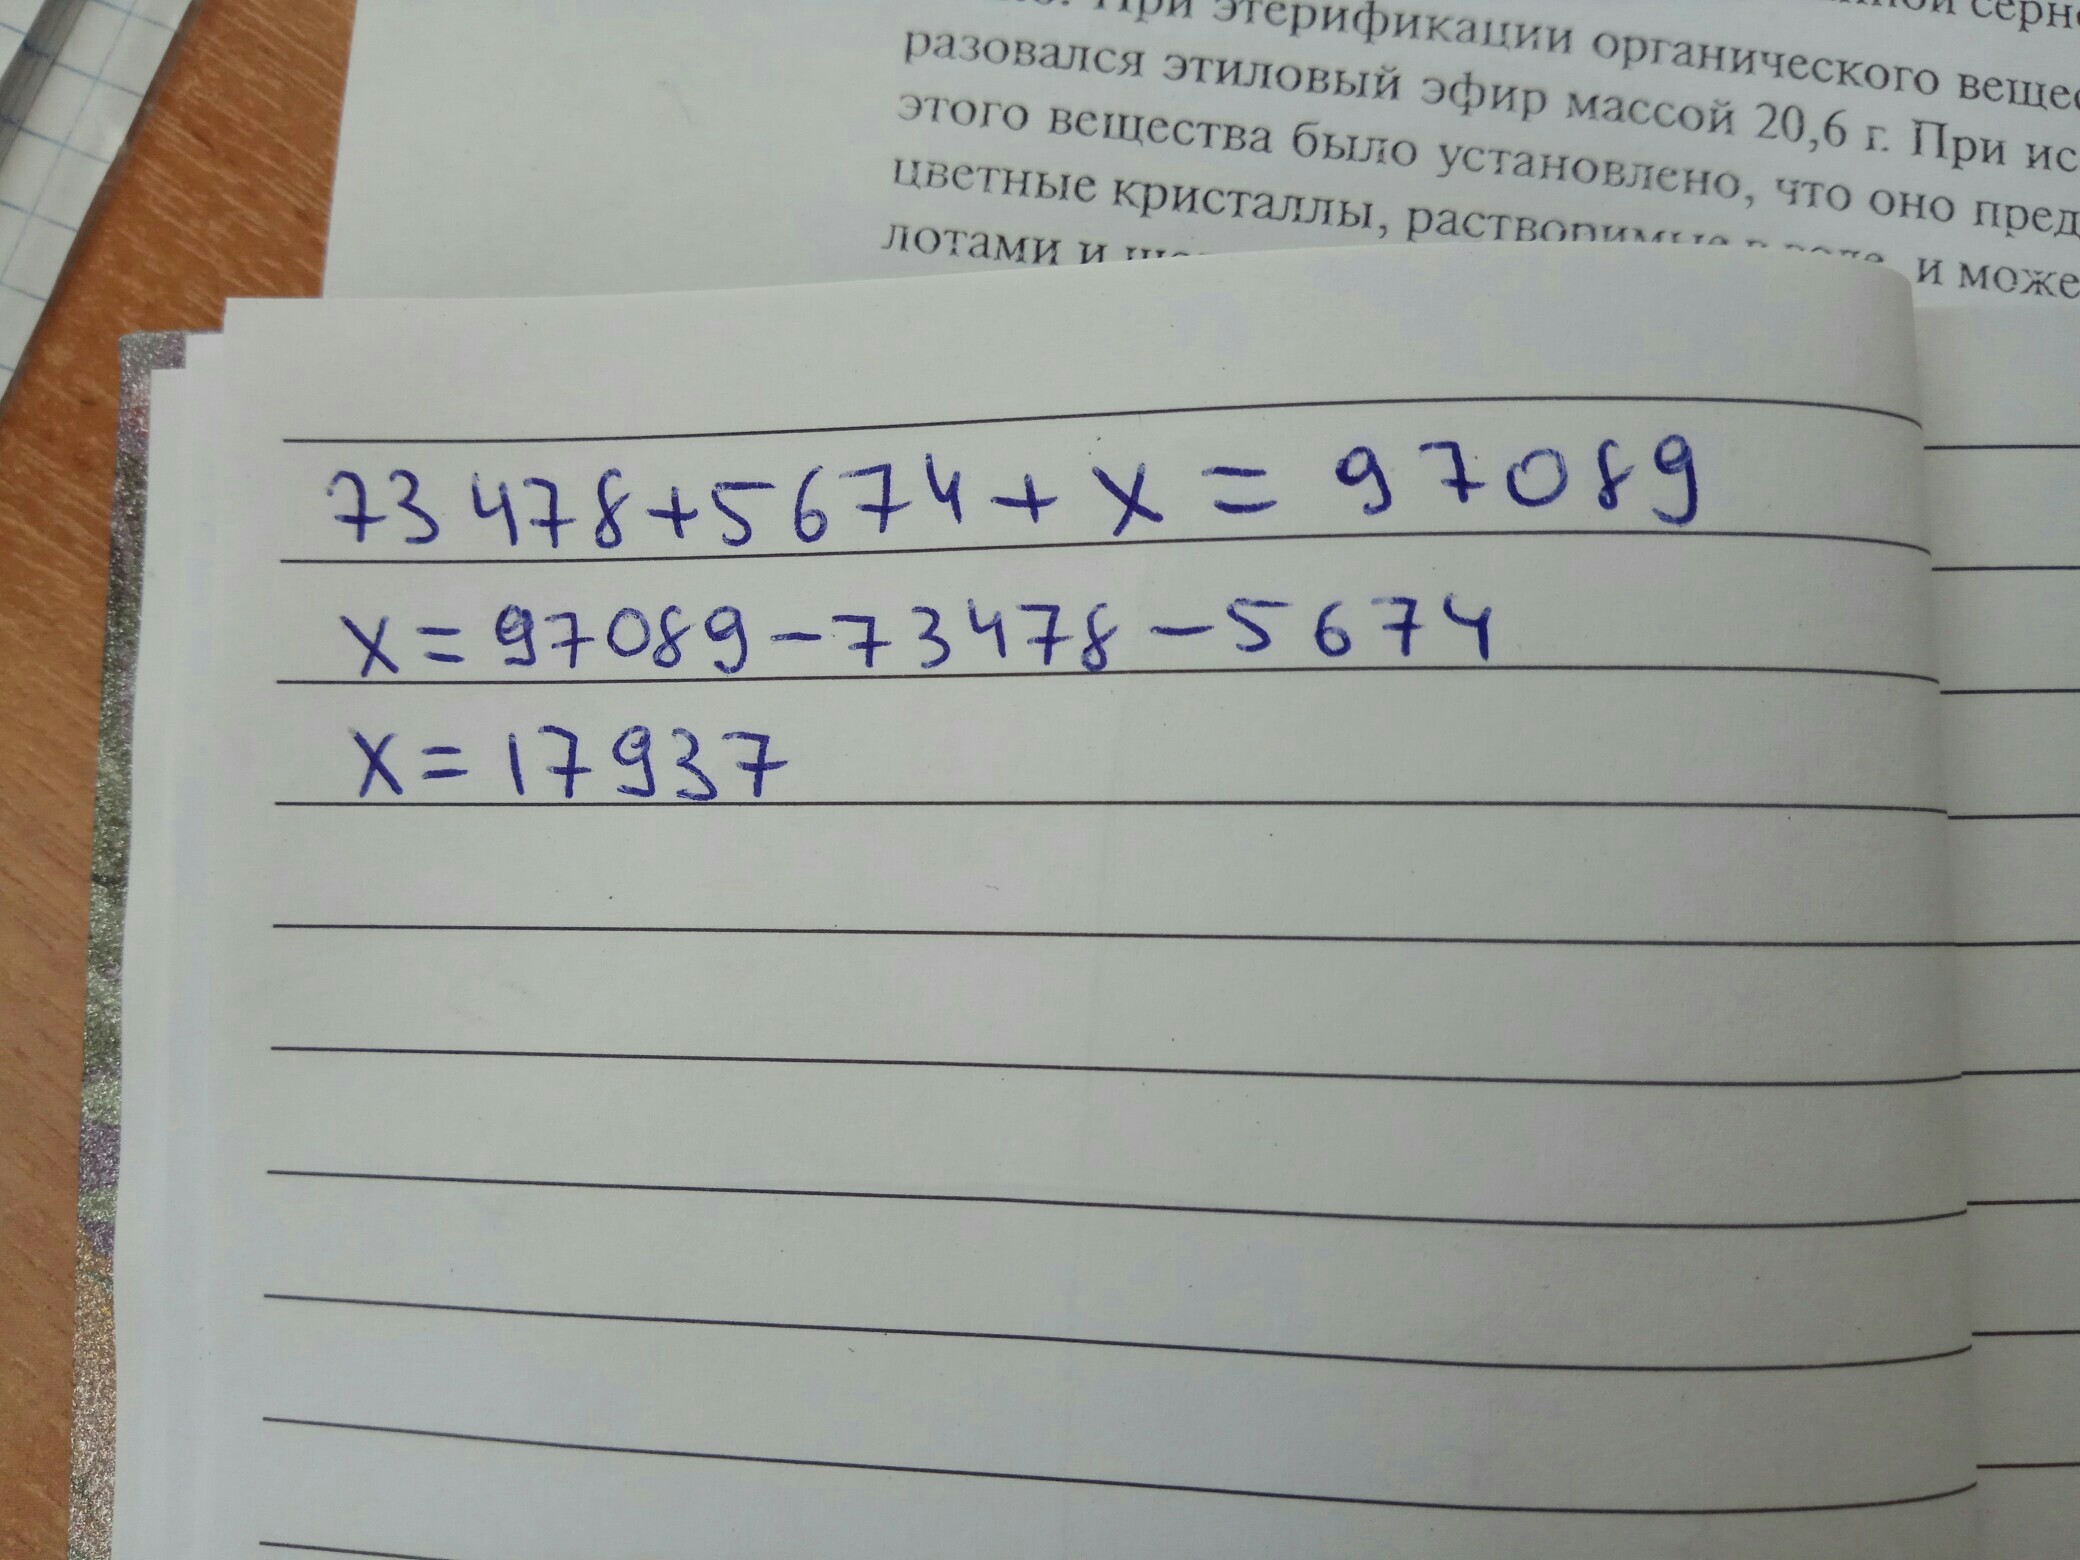 При этерификации органического
разовался этиловый эфир массой 20,6 г. При
этого вещества было установлено, что оно
цветные кристаллы, растворимые в воде, и
лотами и
73478+5674+x=97089
x=97089-73478-5674
x=17937